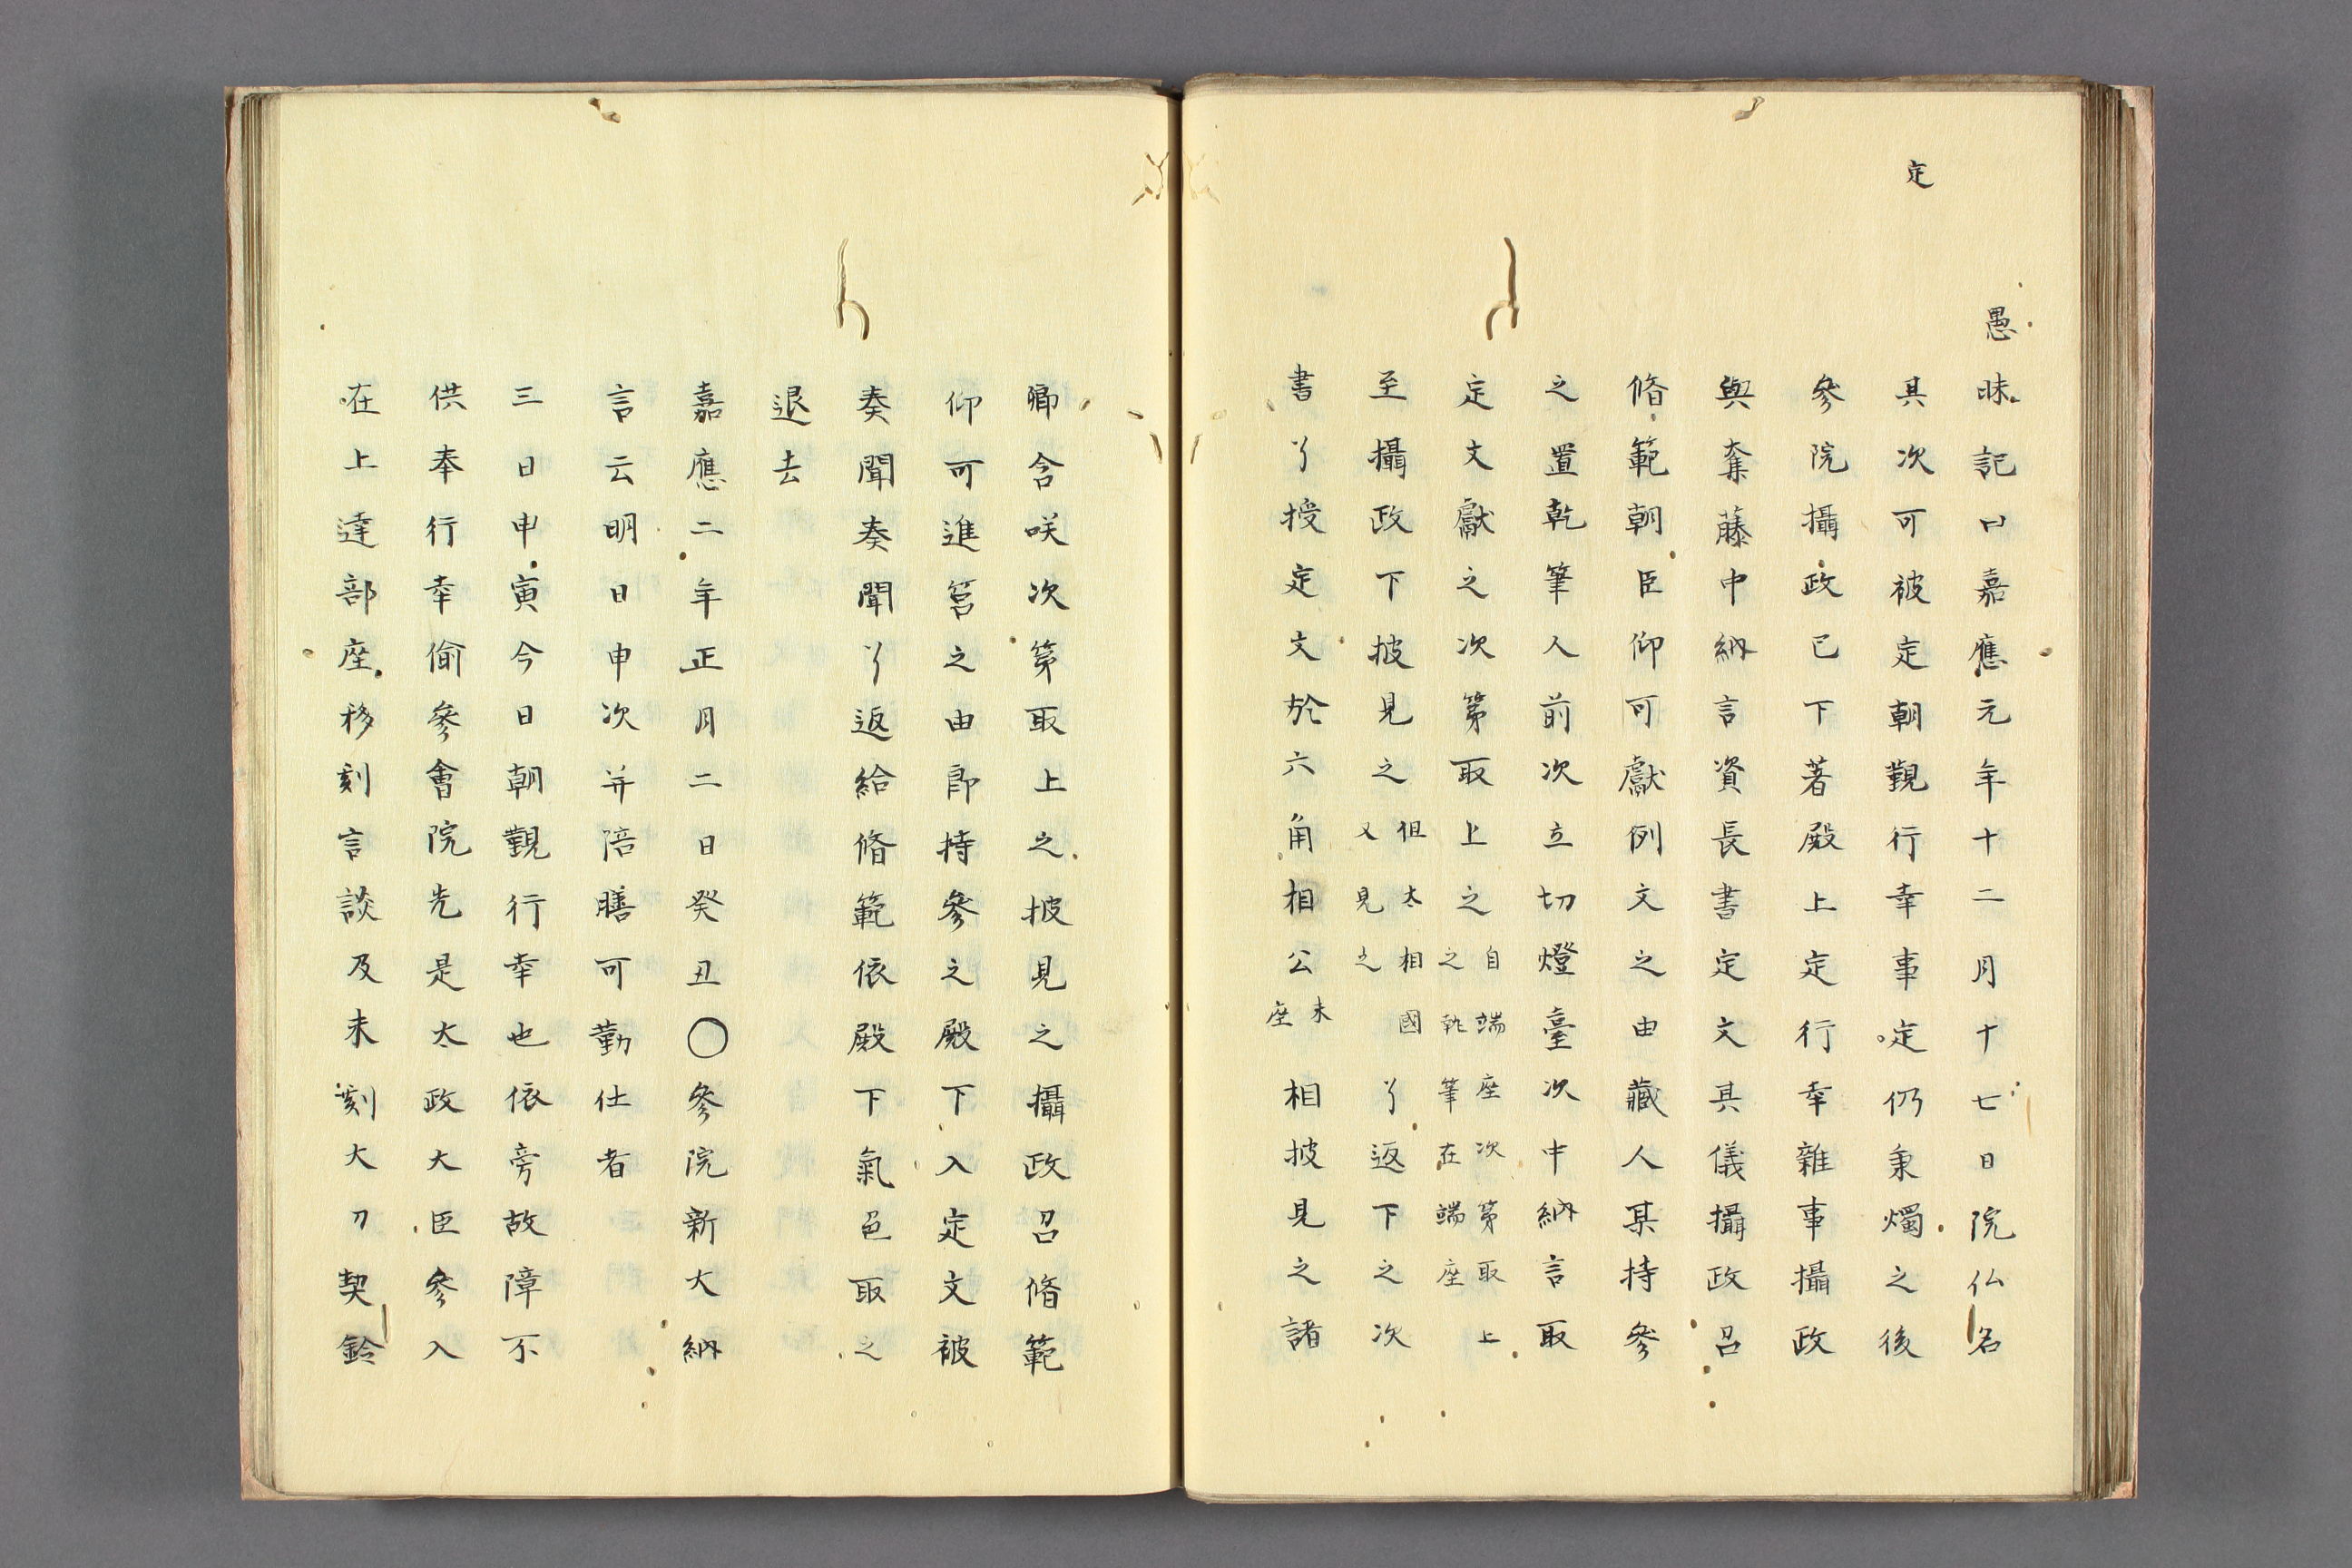 定
愚昧記曰嘉應元年十二月十七日院仏名
其次可被定朝覲行幸事定仍秉燭之後
參院攝政已下著殿上定行幸雜事攝政
與奪藤中納言資長書定文其儀攝政召
脩範朝臣仰可獻例文之由藏人某持參
之置乾筆人前次立切燈臺次中納言取
定文獻之次第取上之自端座次第取上
之執筆在端座
至攝政下披見之但太相國
又見之了返下之次
書了授定文於六角相公末
座相披見之諸
卿含咲次第取上之披見之攝政召脩範
仰可進筥之由即持參之殿下入定文被
奏聞奏聞了返給脩範依殿下氣色取之
退去
嘉應二年正月二日癸丑〇參院新大納
言云明日申次并陪膳可勤仕者
三日申寅今日朝覲行幸也依旁故障不
供奉行幸偷參會院先是太政大臣參入
在上達部座移刻言談及未刻大刀契鈴